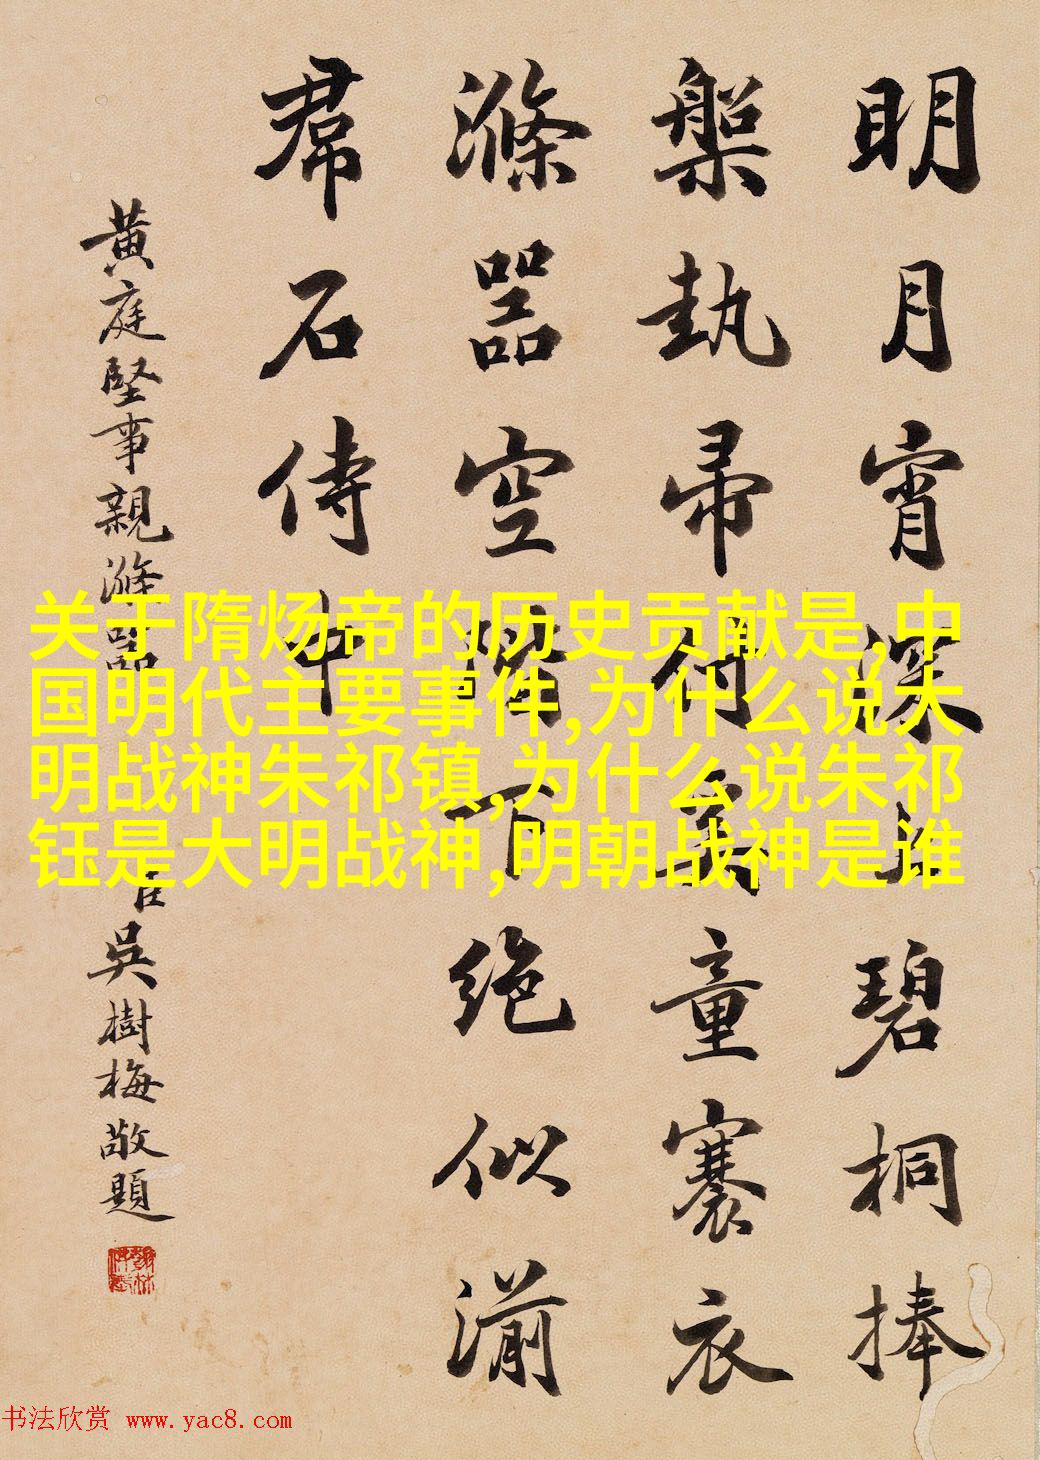 明月宵深碧桐捧
槃執帚美童褰衣
滌器空階下絶似湔
帬石侍中
黄庭堅事親滌器
臣吳樹梅敬題
关于隋炀帝的历史贡献是,中
国明代主要事件,为什么说大
明战神朱祁镇,为什么说朱祁
钰是大明战神,明朝战神是谁
书法欣赏 www.yac8.com